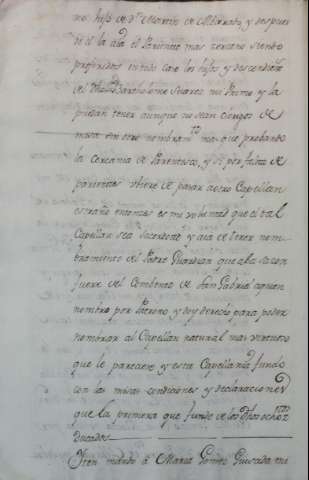 mo hijo de Dⁿ Martin de Albirrato, y despues
de el la al Pariente mas cercano siendo
preferidos en todo caso los hijos y descendientes
de Bartholome Suarez mi Primo y la
puedan tener aunque no sean clerigos de
misa sin otro nombramᵗᵒ mas que probando
la Cercania de Parentesco, y si por falta de
parientes vbiere de pasar a otro Capellan
estraño entonces es mi voluntad que el tal
Capellan sea Sacerdote y aia de tener nom-
bramiento de el Padre Guardian que a la sazon
fuere de el Combento de San Gabriel a quien
nombro por Patrono y doy derecho para poder
nombrar al Capellan natural mas virtuoso
que le pareciere y esta Capellania fundo
con las misas condiciones y declaraciones
que la primera que fundo de los dhos ocho
Ducados
Iten mando a Maria Gomez Quixada mi